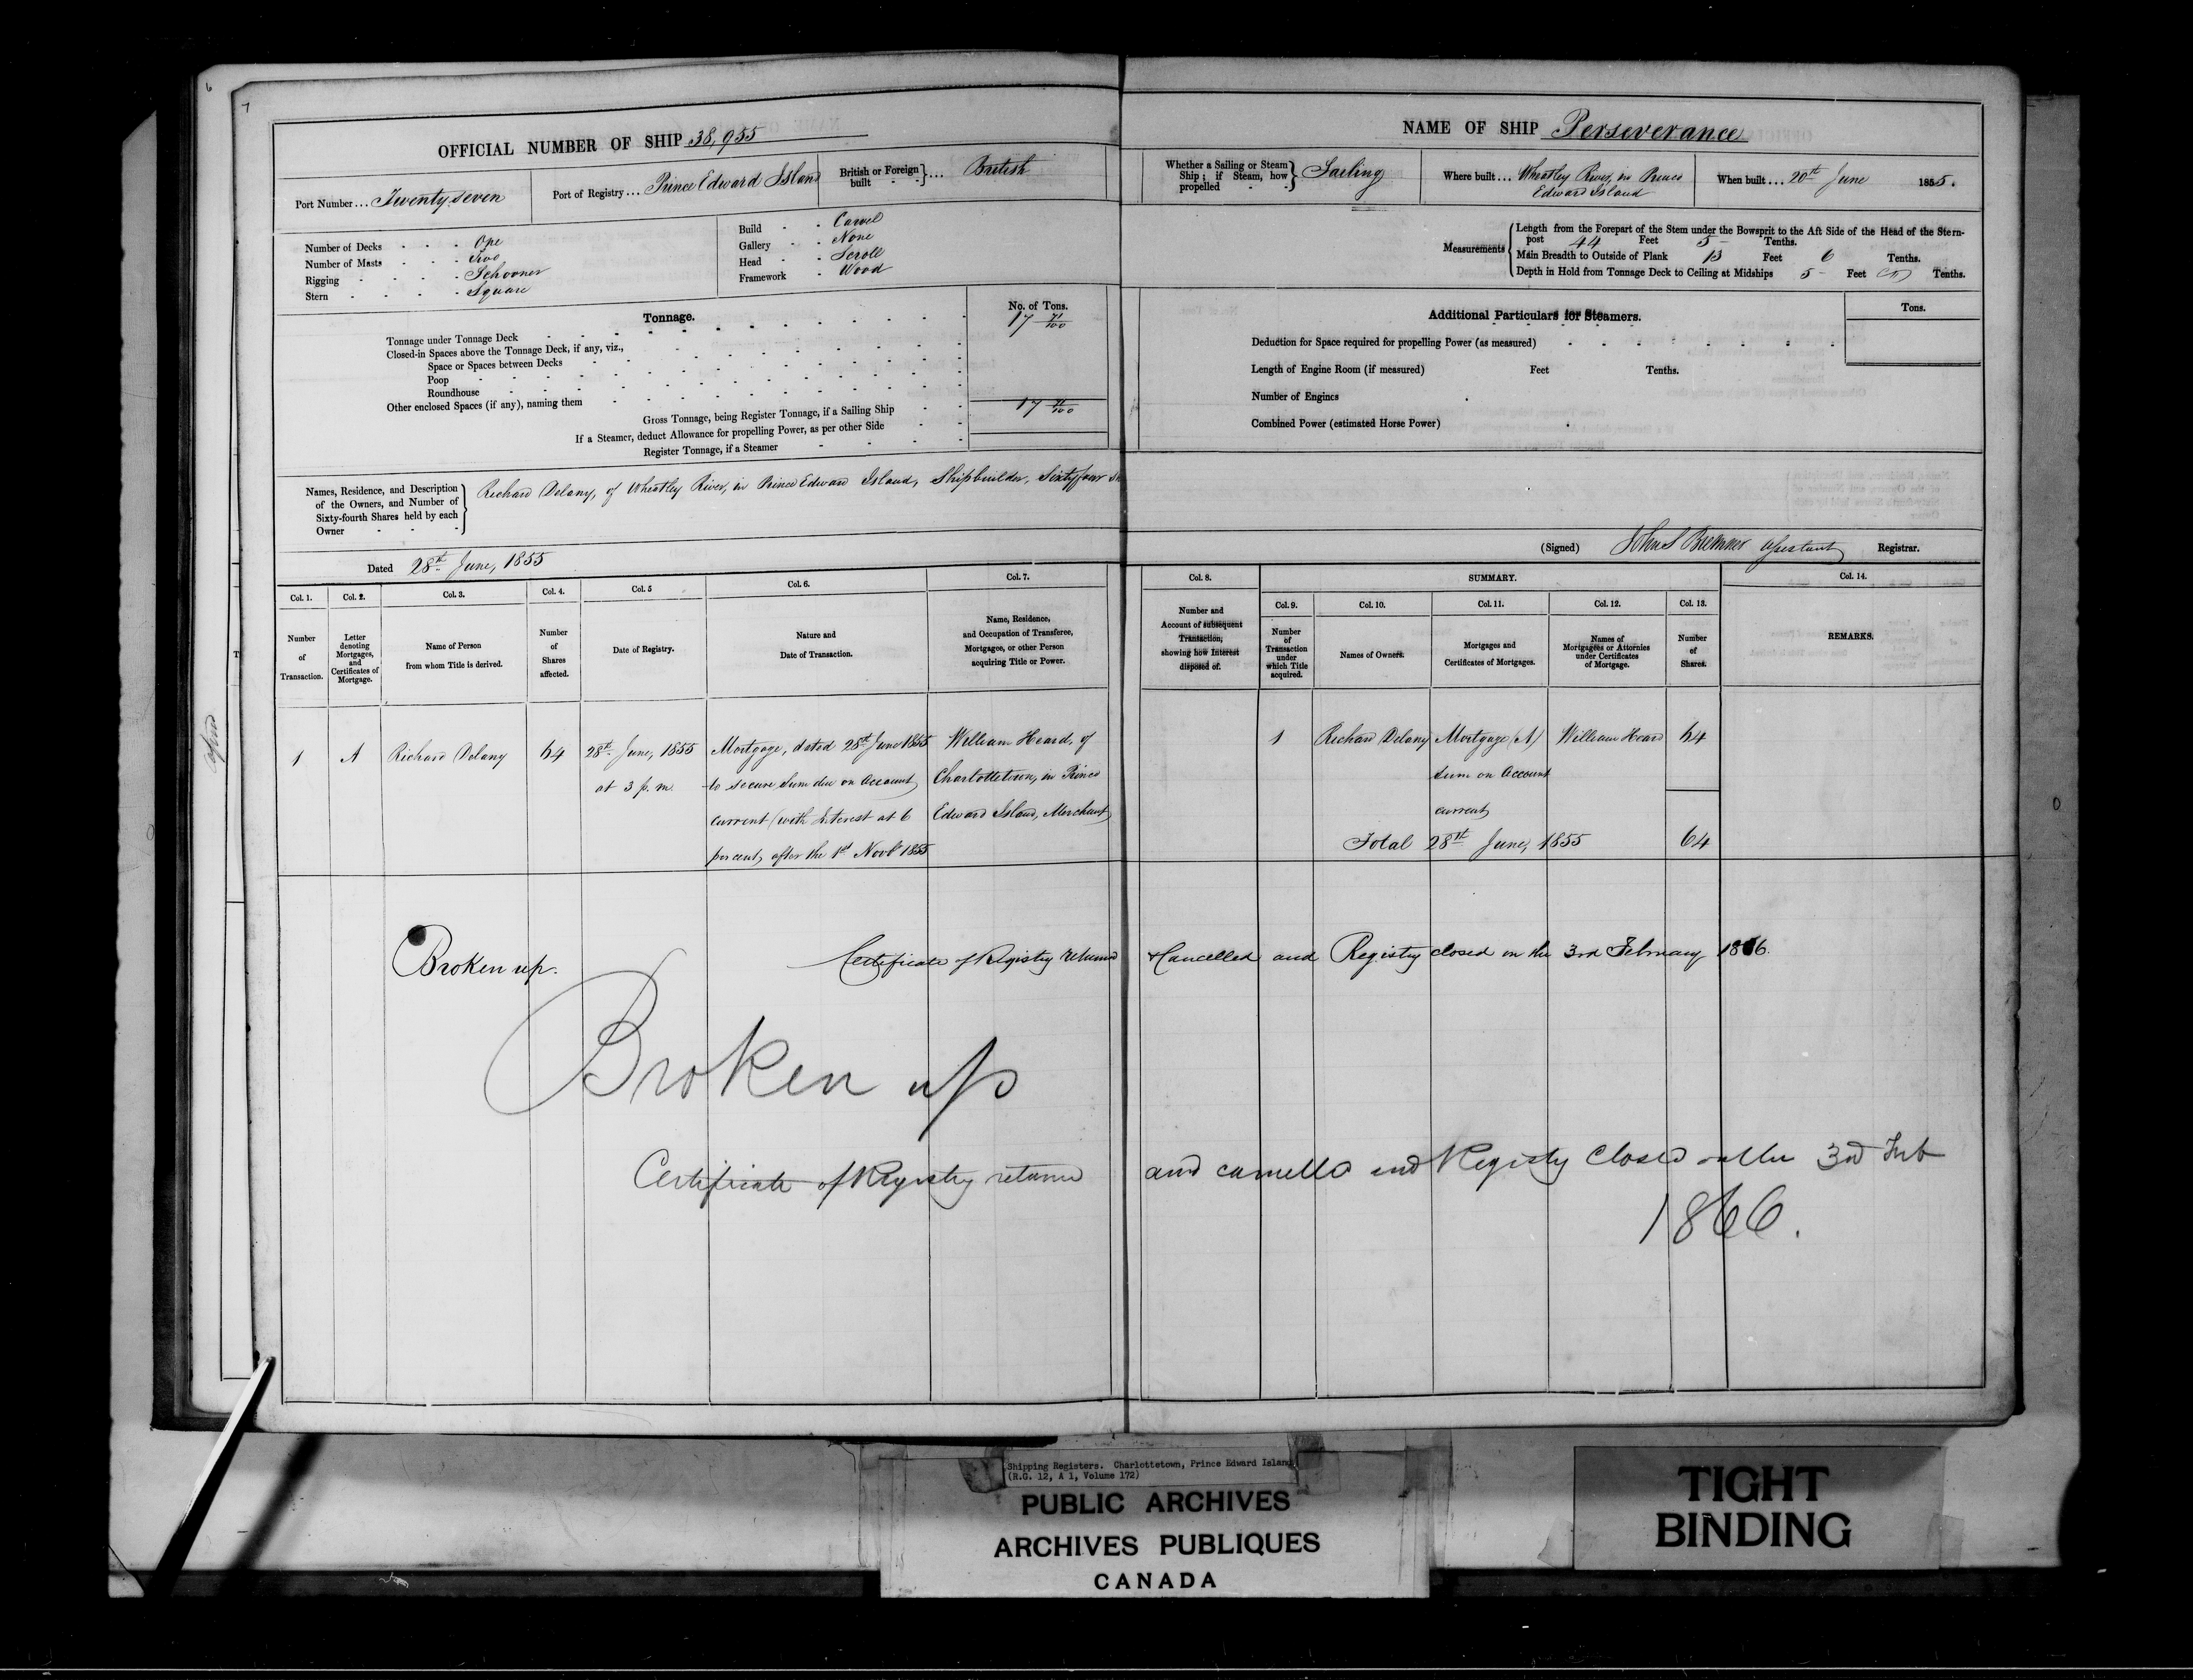 6
7
OFFICIAL NUMBER OF SHIP 38,955
Port Number... Twenty seven
Port of Registry... Prince Edward Island
British or Foreign built } ... British
Number of Decks One
Number of Masts Two
Rigging Schooner
Stern Square
Build Carvel
Gallery None
Head Scroll
Framework Wood
Tonnage.
No. of Tons.
Tonnage under Tonnage Deck 17 71/100
Closed-in Spaces above the Tonnage Deck, if any, viz.,
Space or Spaces between Decks
Poop
Roundhouse
Other enclosed Spaces (if any), naming them
Gross Tonnage, being Register Tonnage, if a Sailing Ship 17 71/100
If a Steamer, deduct Allowance for propelling Power, as per other Side
Register Tonnage, if a Steamer
Names, Residence, and Description of the Owners, and Number of Sixty-fourth Shares held by each Owner
Richard Delany, of Wheatley River, in Prince Edward Island, Shipbuilder, Sixty four Sh
Dated 28th June, 1855
NAME OF SHIP Perseverance
Whether a Sailing or Steam Ship; if Steam, how propelled } Sailing
Where built... Wheatley River, in Prince
Edward Island
When built... 20th June 1855.
Measurements
Length from the Forepart of the Stem under the Bowsprit to the Aft Side of the Head of the Stern-
post 44 Feet 5 Tenths.
Main Breadth to Outside of Plank 13 Feet 6 Tenths.
Depth in Hold from Tonnage Deck to Ceiling at Midships 5 Feet Tenths.
Additional Particulars for Steamers.
Tons.
Deduction for Space required for propelling Power (as measured)
Length of Engine Room (if measured) Feet Tenths.
Number of Engines
Combined Power (estimated Horse Power)
(Signed) John S Bremner Assistant Registrar.
Col. 1.
Number
of
Transaction.
Col. 2.
Letter
denoting
Mortgages,
and
Certificates of
Mortgage.
Col. 3.
Name of Person
from whom Title is derived.
Col. 4.
Number
of
Shares
affected.
Col. 5
Date of Registry.
Col. 6.
Nature and
Date of Transaction.
Col. 7.
Name, Residence,
and Occupation of Transferee,
Mortgagee, or other Person
acquiring Title or Power.
Col. 8.
Number and
Account of subsequent
Transaction,
showing how Interest
disposed of.
SUMMARY.
Col. 9.
Number
of
Transaction
under
which Title
acquired.
Col. 10.
Names of Owners.
Col. 11.
Mortgages and
Certificates of Mortgages.
Col. 12.
Names of
Mortgagees or Attornies
under Certificates
of Mortgage.
Col. 13.
Number
of
Shares.
Col. 14.
REMARKS.
1
A
Richard Delany
64
28th June, 1855
at 3 p.m.
Mortgage, dated 28th June 1855
to secure sum due on account
current (with Interest at 6
per cent, after the 1st Novbr 1855
William Heard, of
Charlottetown, in Prince
Edward Island, Merchant
1
Richard Delany
Mortgage (A)
sum on Account
current
William Heard
64
Total 28th June, 1855 64
Broken up. Certificate of Registry returned & Cancelled and Registry closed on the 3rd February 1866.
Broken up
Certificate of Registry returned and cancelled and Registry Closed on the 3rd Feb
1866.
Shipping Registers. Charlottetown, Prince Edward Island
(R.G. 12, A 1, Volume 172)
PUBLIC ARCHIVES
ARCHIVES PUBLIQUES
CANADA
TIGHT
BINDING